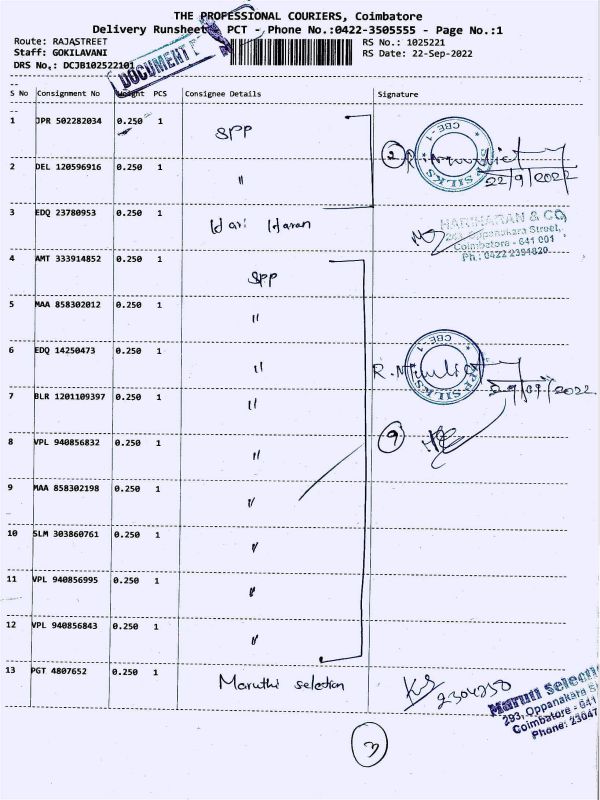 THE PROFESSIONAL COURIERS, Coimbatore
Delivery Runsheet PCT - Phone No.:0422-3505555 - Page No.:1
Route: RAJASTREET
RS No.: 1025221
Staff: GOKILAVANI
RS Date: 22-Sep-2022
DRS No,: DCJB102522101
DOCUMENT
S No Consignment No Weight PCS Consignee Details Signature
1 JPR 502282034 0.250 1 SPP
CBE - 1
SPP SILKS
2
22/9/2022
2 DEL 120596916 0.250 1 "
3 EDQ 23780953 0.250 1 Hari Haran
HARIHARAN & CO
Oppanakara Street,
Coimbatore - 641 001
Ph.: 0422 2394820
4 AMT 333914852 0.250 1 SPP
5 MAA 858302012 0.250 1 "
6 EDQ 14250473 0.250 1 "
CBE - 1
SPP SILKS
7 BLR 1201109397 0.250 1 "
22/09/2022
8 VPL 940856832 0.250 1 "
9
9 MAA 858302198 0.250 1 "
10 SLM 303860761 0.250 1 "
11 VPL 940856995 0.250 1 "
12 VPL 940856843 0.250 1 "
13 PGT 4807652 0.250 1 Maruthi selection
2304738
Maruti Selecti
293, Oppanakara S
Coimbatore - 641
Phone: 23047
3